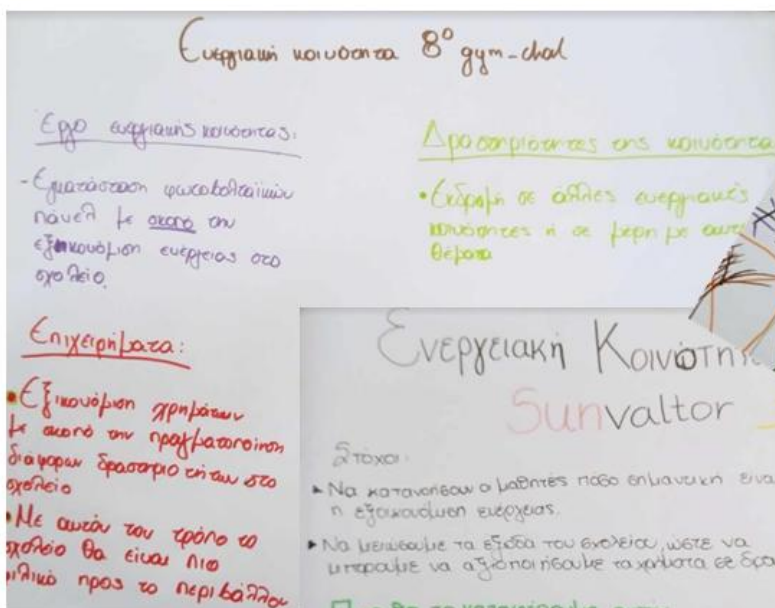 Ενεργιακη κοινοτητα 8° gym-chal
Εργο ενεργιακης κοινοτητας:
- Εγκατάσταση φωτοβολταϊκών
πάνελ με σκοπό την
εξικονόμιση ενέργειας στο
σχολείο.
Δραστηριότητες της κοινότητα
• Εκδρομή σε άλλες ενεργιακές
κοινότητες ή σε μέρη με αυτα
θέματα
Επιχειρήματα:
• Εξικονόμιση χρημάτων
με σκοπό την πραγματοποίηση
διαφορων δραστηριοτήτων στο
σχολείο
• Με αυτόν τον τρόπο το
σχολείο θα είναι πιο
φιλικό προς το περιβάλλον
Ενεργειακή Κοινότητ
Sunvaltor
Στόχοι:
▸ Να κατανοήσουν οι μαθητές πόσο σημαντική είνα
η εξοικονόμηση ενέργειας.
▸ Να μειώσουμε τα έξοδα του σχολείου, ώστε να
μπορουμε να αξιοποιήσουμε τα χρήματα σε δρα